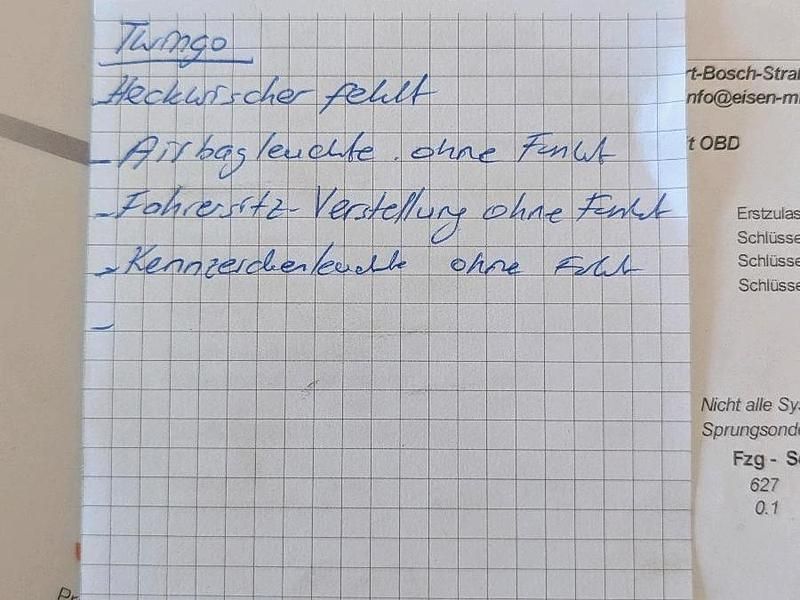 Twingo
- Heckwischer fehlt
- Airbagleuchte . ohne Funkt
- Fahrersitz - Verstellung ohne Funkt
- Kennzeichenleuchte ohne Fukt
-
rt-Bosch-Stra
nfo@eisen-m
t OBD
Erstzulas
Schlüsse
Schlüsse
Schlüsse
Nicht alle Sy
Sprungsond
Fzg - S
627
0.1
Pr